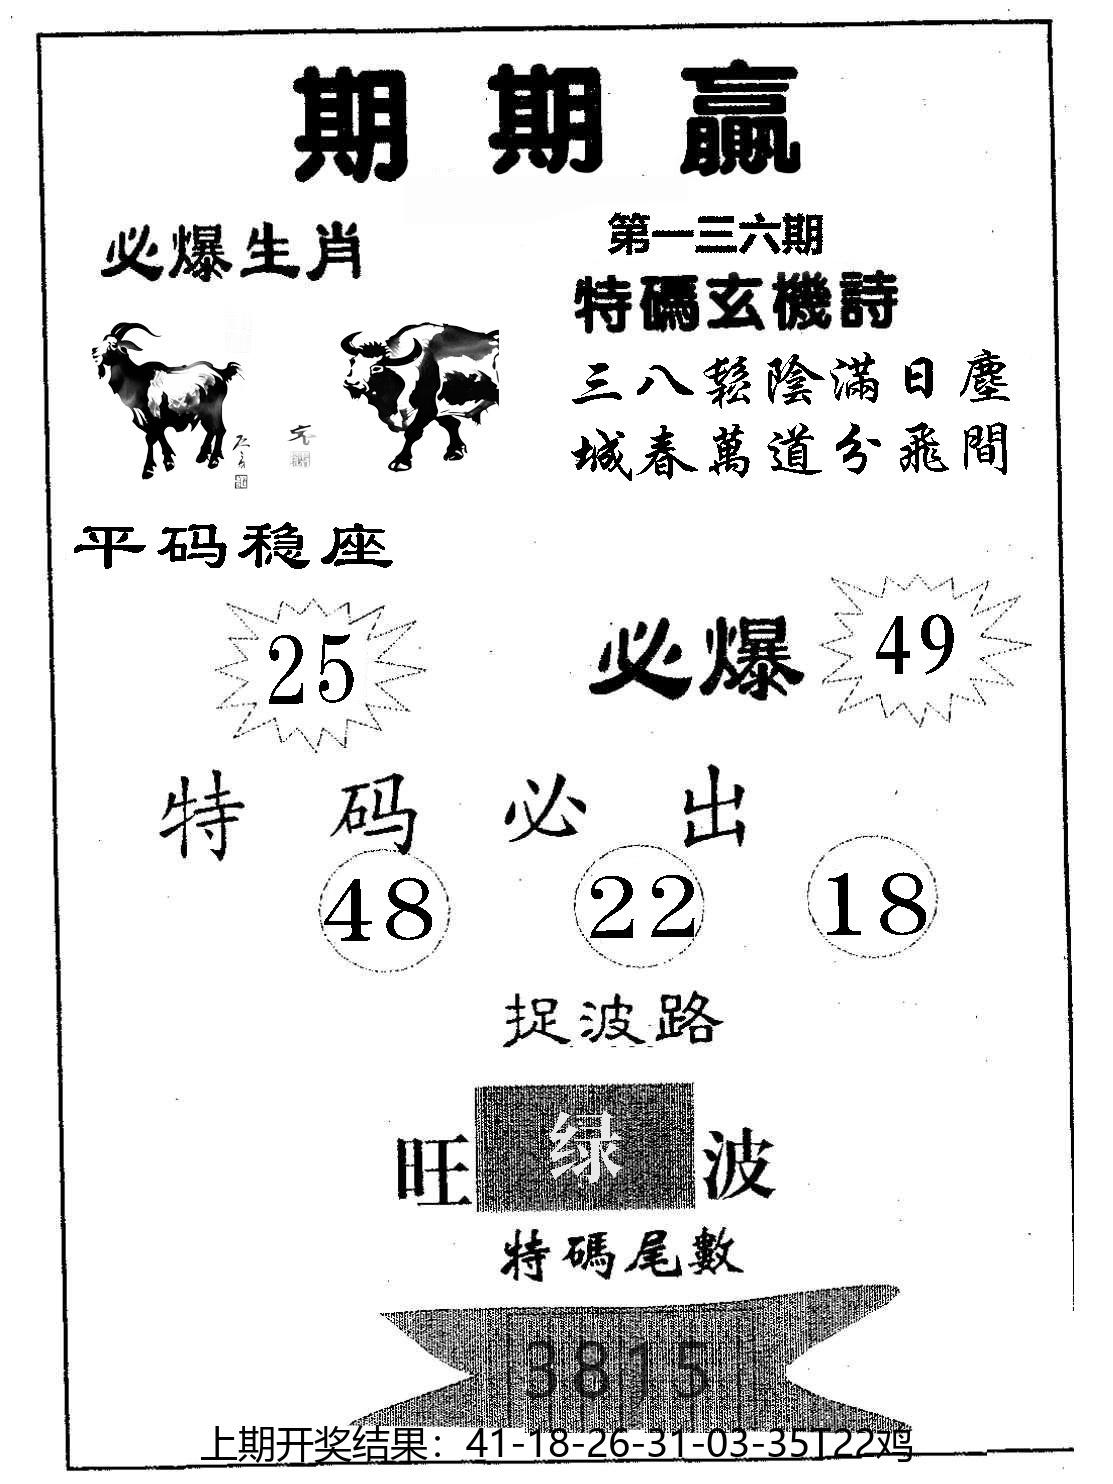 期期贏
必爆生肖
第一三六期
特碼玄機詩
三八鬆陰滿日塵
城春萬道分飛間
平码稳座
25
必爆
49
特码必出
48 22 18
捉波路
旺 绿 波
特碼尾數
3815
上期开奖结果：41-18-26-31-03-35T22鸡